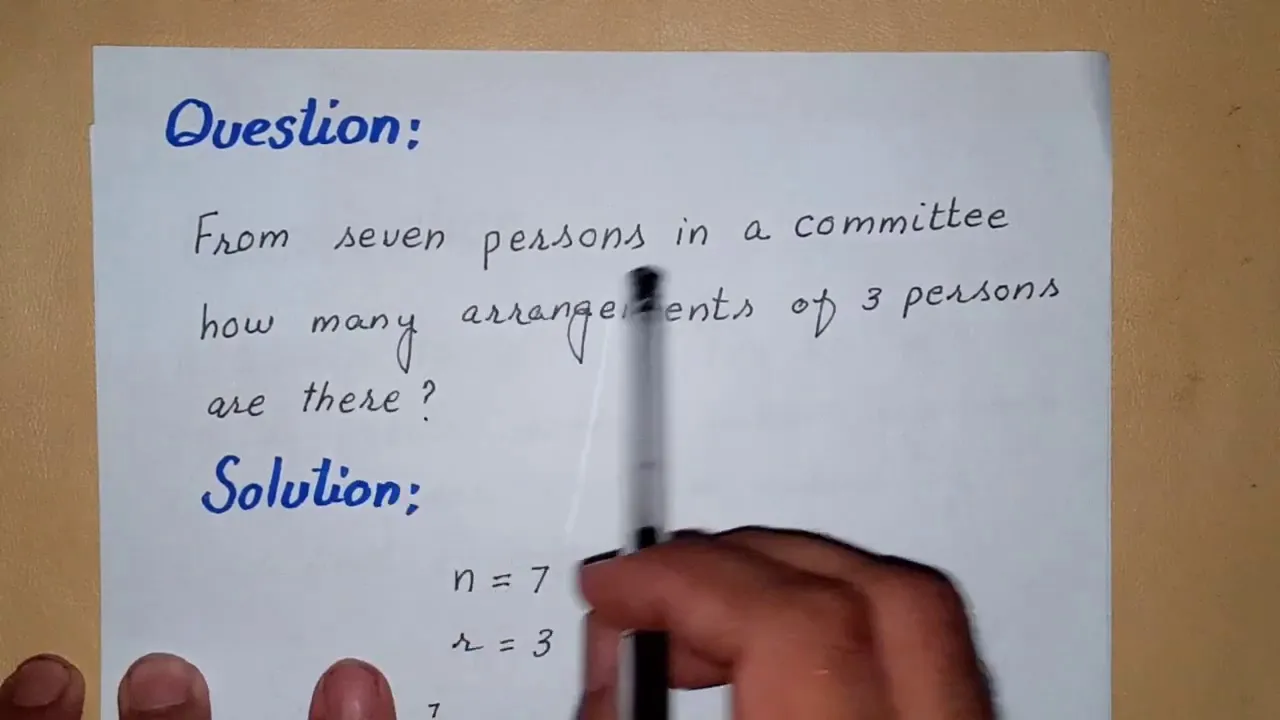 Question:
From seven persons in a committee
how many arrangements of 3 persons
are there?
Solution:
n = 7
r = 3
7